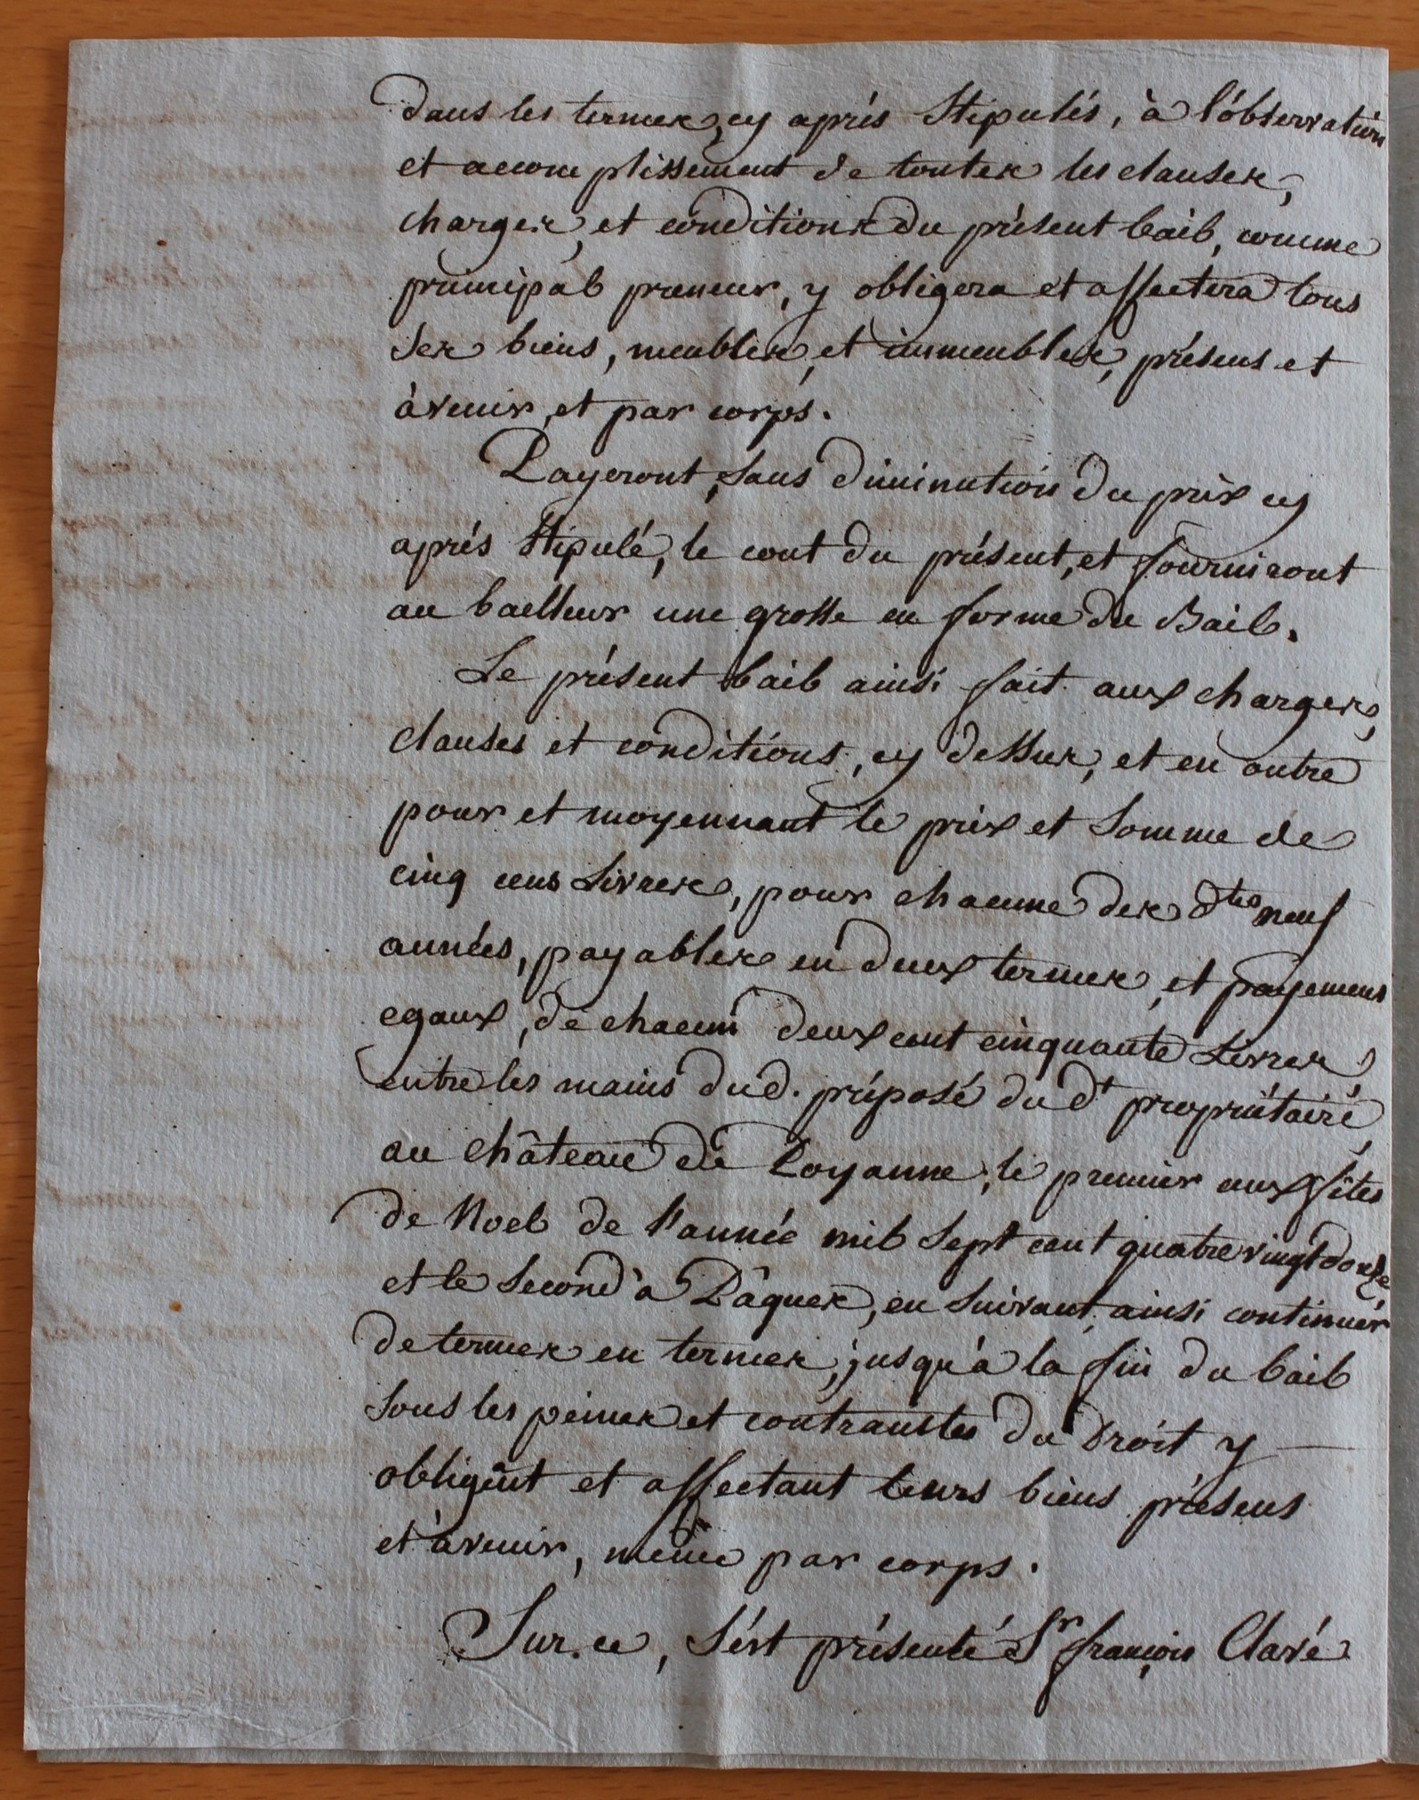 dans les termes, cy aprés Stipulés, à l'observation
et accomplissement de toutes les clauses,
charges, et conditions du présent bail, comme
principal preneur, y obligera et affectera tous
ses biens, meubles, et immeubles, présens et
àvenir, et par corps.
Payeront, sans diminution du prix cy
aprés Stipulé, le cout du présent, et fourniront
au bailleur une grosse en forme du Bail.
Le présent bail ainsi fait aux charges,
clauses et conditions, cy dessus, et en outre
pour et moyennant le prix et Somme de
cinq cens Livres, pour chacune des dtes neuf
années, payables en deux termes, et payemens
egaux, de chacun deux cent cinquante Livres,
entre les mains dud. préposé du dt propriétaire,
au château de Poyanne, le premier aux fêtes
de Noel de l'année mil Sept cent quatre vingt douze
et le Second à Pâques, en Suivant, ainsi continuer
de termes en termes, jusqu'à la fin du bail
Sous les peines et contraintes du droit y
obligeut et affectant leurs biens présens
et àvenir, même par corps.
Sur ce, S'ést présenté Sr françois Claré